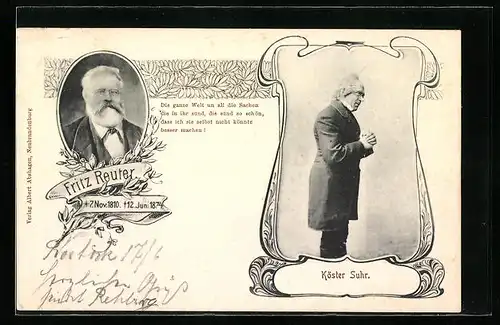 Die ganze Welt un all die Sachen
die in ihr sünd, die sünd so schön,
dass ich sie selbst nicht könnte
besser machen!
Fritz Reuter.
*7.Nov.1810. †12.Juni 1874.
Verlag Albert Abshagen, Neubrandenburg
Köster Suhr.
Rostock 17/6
herzlichen Gruß